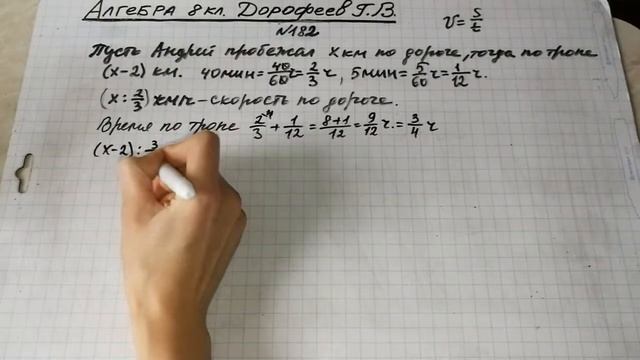 Алгебра 8кл. Дорофеев Г.В.
v = s/t
№182
Пусть Андрей пробежал x км по дороге, тогда по тропе
(x-2) км. 40мин = 40/60 ч = 2/3 ч, 5мин = 5/60 ч = 1/12 ч.
(x : 2/3) км/ч - скорость по дороге.
Время по тропе 2/3 + 1/12 = 8+1/12 = 9/12 ч. = 3/4 ч
(x-2) : 3